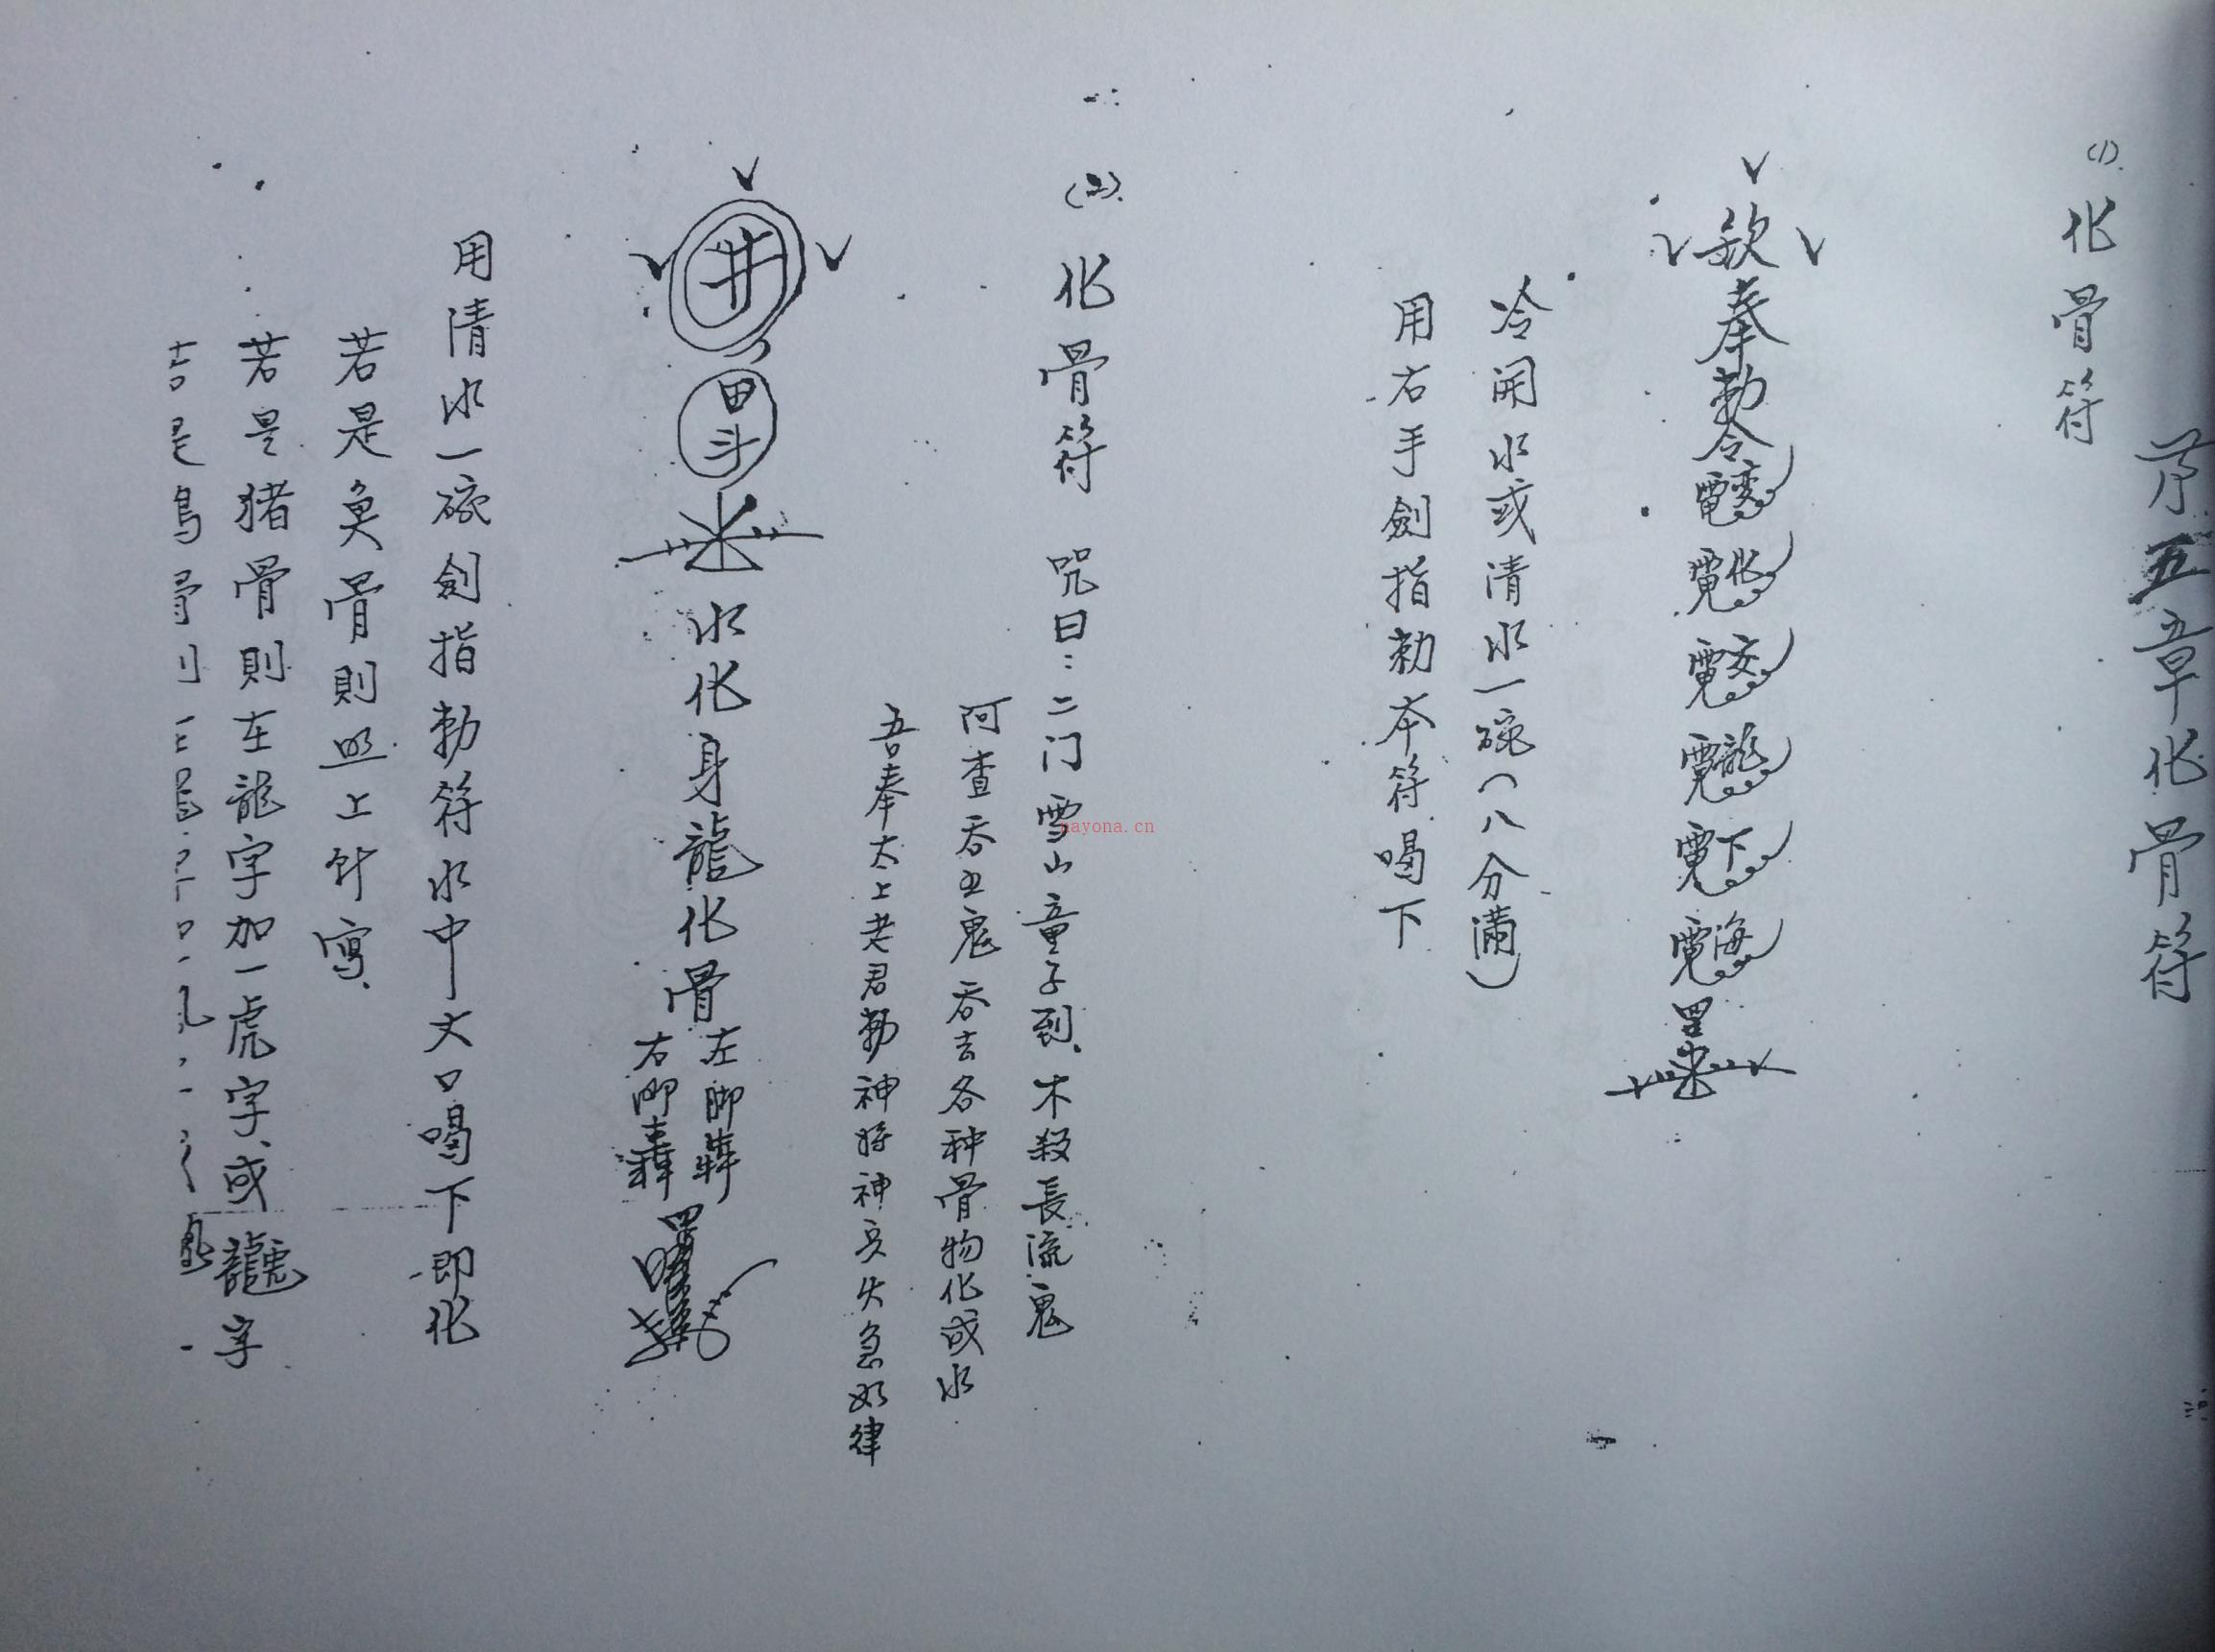 第五章化骨符
(1).化骨符
欽奉勅令
罡
冷開水或清水一碗(八分滿)
用右手劍指勅本符喝下
(2).化骨符 咒曰:二门雪山童子到.木殺長流鬼
阿查吞五鬼吞去各种骨物化成水
吾奉太上老君勅神将神兵火急如律
井
田斗
水化身龍化骨
左脚
右脚
罡
用清水一碗劍指勅符水中大口喝下即化
若是魚骨則照上針寫.
若是猪骨則在龍字加一虎字.或龍虎字
nayona.cn